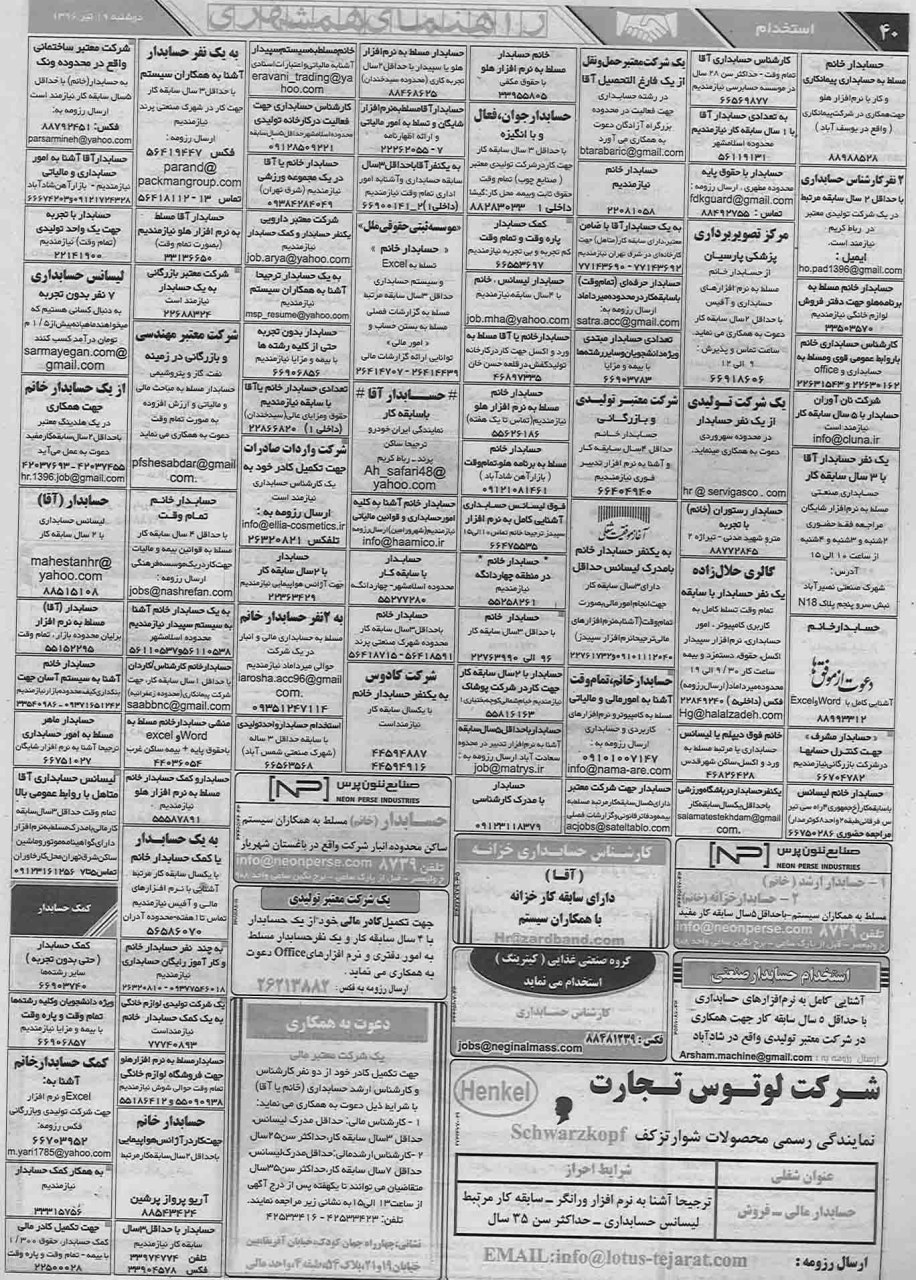 ۴۰
استخدام
راهنمای همشهری
دوشنبه ۱۹ تیر ۱۳۹۶
حسابدار خانم
مسلط به حسابداری پیمانکاری
و کار با نرم افزار هلو
جهت همکاری در شرکت پیمانکاری
( واقع در یوسف آباد )
۸۸۹۸۸۵۲۸
۲ نفر کارشناس حسابداری
با حداقل ۲ سال سابقه مرتبط
در یک شرکت تولیدی معتبر
در رباط کریم
نیازمند است.
ایمیل :
ho.pad1396@gmail.com
حسابدار خانم مسلط به
برنامه هلو جهت دفتر فروش
لوازم خانگی نیازمندیم
۳۳۵۰۳۵۷۰
کارشناس حسابداری خانم
با روابط عمومی قوی ومسلط به
حسابداری و office
۲۲۶۳۰۱۶۲ و ۲۲۶۳۱۵۴۳
شرکت نان آوران
حسابدار با ۵ سال سابقه کار
info@cluna.ir
یک نفر حسابدار آقا
با ۳ سال سابقه کار
حسابداری صنعتی
مسلط به نرم افزار شایگان
مراجعه فقط حضوری
۲شنبه و ۳شنبه و ۴شنبه
از ساعت ۱۰ الی ۱۵
آدرس :
شهرک صنعتی نصیرآباد
نبش سرو پنجم پلاک N18
حسابدار خانم
دعوت از موفق ها
آشنایی کامل با Word و Excel
۸۸۹۹۳۳۱۲
«حسابدار مشرف»
جهت کنترل حسابها
در شرکت بازرگانی نیازمندیم
۶۶۷۰۴۷۸۲
حسابدار خانم لیسانس
مراجعه حضوری ۶۶۷۵۰۲۸۶
کارشناس حسابداری آقا
تمام وقت - حداکثر سن ۲۸ سال
در موسسه حسابرسی نیازمندیم
۶۶۵۶۹۸۷۷
به تعدادی حسابدار آقا
با ۱ سال سابقه کار نیازمندیم
محدوده اسلامشهر
۵۶۱۱۹۱۳۱
حسابدار با حقوق پایه
محدوده مطهری . ارسال رزومه :
fdkguard@gmail.com
تماس : ۸۸۴۹۲۷۵۵
مرکز تصویربرداری
پزشکی پارسیان
از حسابدار خانم
مسلط به نرم افزارهای
حسابداری و آفیس
با حداقل ۲ سال سابقه کار
دعوت به همکاری می نماید.
ساعت تماس و پذیرش:
۹ الی ۱۲
۶۶۹۱۸۶۰۶
یک شرکت تولیدی
از یک نفر حسابدار
در محدوده سهروردی
دعوت به همکاری مینماید.
hr@servigasco.com
حسابدار رستوران (خانم)
با تجربه
مترو شهید مدنی - تیرازه ۲
۸۸۷۷۲۸۴۵
گالری حلال زاده
یک نفر حسابدار با سابقه
تمام وقت تسلط کامل به
کاربری کامپیوتر ، امور
حسابداری، نرم افزار سپیدار
اکسل، حقوق، دستمزد و بیمه
ساعت کار ۹/۳۰ الی ۱۹
محدوده میرداماد (ارسال رزومه)
فکس (داخلی ۵) ۲۲۸۴۹۲۴۰
Hg@halalzadeh.com
خانم فوق دیپلم یا لیسانس
حسابداری یا مرتبط مسلط به
ورد و اکسل ساکن شهرقدس
۴۶۸۲۶۴۲۸
یکنفر حسابدار در باشگاه ورزشی
با حداقل یکسال سابقه کار
salamatestekhdam@gmail.com
یک شرکت معتبر حمل و نقل
از یک فارغ التحصیل آقا
در رشته حسابداری
جهت فعالیت در محدوده
بزرگراه آزادگان دعوت
به همکاری می آورد
btarabaric@gmail.com
حسابدار خانم
نیازمندیم
۲۲۰۸۱۰۵۸
به یک حسابدار آقا با ضامن
معتبر دارای سابقه کار (متاهل) جهت
کارخانه ای در شرق تهران نیازمندیم
۷۷۱۴۳۶۹۰ - ۷۷۱۴۳۶۹۲
حسابدار حرفه ای (تمام وقت)
با سابقه کار در محدوده میرداماد
ارسال رزومه به :
satra.acc@gmail.com
تعدادی حسابدار مبتدی
ویژه دانشجویان و سایر رشته ها
با بیمه و مزایا
۶۶۹۰۳۷۸۳
شرکت معتبر تولیدی
و بازرگانی
حسابدار خانم
حداقل ۴ سال سابقه کار
و آشنا به نرم افزار تدبیر
فوری نیازمندیم
۶۶۴۰۴۹۴۰
آغاز موفقیت شغلی
به یکنفر حسابدار خانم
با مدرک لیسانس حداقل
دارای ۳ سال سابقه کار
جهت انجام امور مالی بصورت
تمام وقت (آشنا به نرم افزارهای
مالی ترجیحا نرم افزار سپیدار)
۲۲۷۶۱۷۳۲ و ۰۹۱۰۱۱۱۲۰۴۰
حسابدار خانم، تمام وقت
آشنا به امور مالی و مالیاتی
مسلط به کامپیوتر و نرم افزارهای
کاربردی و حسابداری
۰۹۱۰۱۰۰۷۱۴۷
info@nama-are.com
حسابدار جهت شرکت معتبر
acjobs@sateltablo.com
خانم حسابدار
مسلط به نرم افزار هلو
با حقوق مکفی
۳۳۹۵۵۸۰۵
حسابدار جوان، فعال
و با انگیزه
با حداقل ۳ سال سابقه کار
جهت کار در شرکت تولیدی معتبر
(صنایع چوب) تمام وقت
حقوق ثابت وبیمه. محل کار: گیشا
داخلی ۱ ۸۸۲۸۳۰۳۳
کمک حسابدار
پاره وقت و تمام وقت
کم تجربه و بی تجربه نیازمندیم
۶۶۵۵۳۶۹۷
حسابدار لیسانس ، خانم
با ۴ سال سابقه . نیازمندیم
job.mha@yahoo.com
حسابدار خانم یا آقا مسلط به
ورد و اکسل جهت کار در کارخانه
تولید کفش در قلعه حسن خان
۴۶۸۹۷۳۳۵
حسابدار خانم
مسلط به نرم افزار هلو
نیازمندیم (تماس تا یک هفته)
۵۵۶۲۶۱۸۶
حسابدار خانم
مسلط به برنامه هلو، تمام وقت
(بازار آهن شادآباد)
۰۹۱۲۱۰۸۱۴۶۱
فوق لیسانس حسابداری
آشنایی کامل به نرم افزار
سپیدار ترجیحا خانم تماس ۱۰ الی ۱۵
۶۶۴۷۵۵۳۵
* حسابدار خانم *
در منطقه چهاردانگه
۵۵۲۵۸۲۶۱
حسابدار خانم
با حداقل ۳ سال سابقه کار
۹۶ الی ۲۲۷۶۳۹۹۰
حسابدار با ۲ سال سابقه کار
جهت کار در شرکت پوشاک
۵۵۸۱۶۱۶۳
حسابدار با حداقل ۵ سال سابقه
آشنا به نرم افزار تدبیر در محدوده
سعادت آباد ارسال رزومه به :
job@matrys.ir
حسابدار
با مدرک کارشناسی
۰۹۱۲۳۱۱۸۳۷۹
حسابدار مسلط به نرم افزار
هلو یا سپیدار با حداقل ۲ سال
تجربه کاری (محدوده سیدخندان)
۸۸۴۶۸۶۲۵
حسابدار آقا مسلط به نرم افزار
شایگان و تسلط به امور مالیاتی
و ارائه اظهارنامه
۷ - ۲۲۲۶۲۰۵۵
به یکنفر آقا با حداقل ۳ سال
سابقه حسابداری و آشنا به امور
اداری تمام وقت نیازمندیم
(داخلی ۲) ۲_۶۶۹۰۰۱۴۱
«موسسه ثبتی حقوقی ملل»
« حسابدار خانم »
تسلط به Excel
و سیستم حسابداری
حداقل ۳ سال سابقه مرتبط
مسلط به گزارشات فصلی
مسلط به بستن حساب و
( امور مالی )
توانایی ارائه گزارشات مالی
۲۶۴۱۴۷۰۷ - ۲۶۴۱۴۴۳۹
# حسابدار آقا #
با سابقه کار
نمایندگی ایران خودرو
ترجیحا ساکن
پرند - رباط کریم
Ah_safari48@yahoo.com
حسابدار خانم آشنا به کلیه
امور حسابداری و قوانین مالیاتی
info@haamico.ir
حسابدار خانم
با سابقه کار
محدوده اسلامشهر- چهاردانگه
۵۵۲۷۷۲۸۰
حسابدار
با حداقل ۳ سال سابقه کار
محدوده شهرک صنعتی پرند
۵۶۴۱۸۷۱۵ - ۵۶۴۱۸۵۹۱
شرکت کادوس
به یکنفر حسابدار خانم
با یکسال سابقه کار
نیازمند است
۴۴۵۹۴۸۸۷
۴۴۵۹۴۹۱۶
خانم مسلط به سیستم سپیدار
آشنا به مالیاتی و اعتبارات اسنادی
eravani_trading@yahoo.com
کارشناس حسابداری جهت
فعالیت در کارخانه تولیدی
محدوده اسلامشهر حداقل ۵ سال سابقه
۰۹۱۲۸۵۰۹۲۲۱
حسابدار خانم یا آقا
در یک مجموعه ورزشی
نیازمندیم (شرق تهران)
۰۹۳۸۴۲۸۴۰۴۹
شرکت معتبر دارویی
یکنفر حسابدار و کمک حسابدار
نیازمندیم
job.arya@yahoo.com
به یک حسابدار ترجیحا
آشنا به همکاران سیستم
نیازمندیم
msp_resume@yahoo.com
حسابدار بدون تجربه
حتی از کلیه رشته ها
با بیمه و مزایا نیازمندیم
۶۶۹۰۶۸۵۶
تعدادی حسابدار خانم یا آقا
با سابقه نیازمندیم
حقوق و مزایای عالی (سیدخندان)
(داخلی ۱) ۲۲۸۶۶۸۲۰
شرکت واردات صادرات
جهت تکمیل کادر خود به
یک کارشناس حسابداری
ارسال رزومه به :
info@ellia-cosmetics.ir
تلفکس ۲۶۳۲۰۸۲۱
حسابدار
با ۲ سال سابقه کار
جهت آژانس هواپیمایی نیازمندیم
۲۲۳۶۳۴۲۹
به ۲ نفر حسابدار خانم
مسلط به حسابداری مالی و انبار
در یک شرکت
حوالی میرداماد نیازمندیم
iarosha.acc96@gmail.com
۰۹۳۵۱۲۴۷۱۱۴
استخدام حسابدار واحد تولیدی
با حداقل سابقه ۳ ساله
(شهرک صنعتی شمس آباد)
۶۶۵۶۳۵۶۸
به یک نفر حسابدار
آشنا به همکاران سیستم
با حداقل ۳ سال سابقه کار
جهت کار در شهرک صنعتی پرند
نیازمندیم
ارسال رزومه :
فکس ۵۶۴۱۹۴۴۷
parand@packmangroup.com
تماس ۱۳ - ۵۶۴۱۸۱۱۲
حسابدار آقا مسلط
به نرم افزار هلو نیازمندیم
(بصورت تمام وقت)
۳۳۱۳۶۶۵۰
شرکت معتبر بازرگانی
به یک حسابدار
نیازمند است
۲۲۶۸۸۳۲۴
شرکت معتبر مهندسی
و بازرگانی در زمینه
نفت گاز و پتروشیمی
حسابدار مسلط به مباحث مالی
و مالیاتی و ارزش افزوده
به صورت تمام وقت
دعوت به همکاری می نماید
pfshesabdar@gmail.com
حسابدار خانم
تمام وقت
با حداقل ۴ سال سابقه کار
مسلط به قوانین بیمه و مالیات
جهت کار در یک موسسه فرهنگی
ارسال رزومه :
jobs@nashrefan.com
به یک حسابدار خانم آشنا
به سیستم سپیدار نیازمندیم
محدوده اسلامشهر
۵۶۱۱۰۵۳۷ و ۵۶۱۱۰۵۳۸
حسابدار خانم کارشناس/کاردان
حداقل ۱ سال سابقه کار جهت
شرکت پیمانکاری (محدوده زعفرانیه)
saabbnc@gmail.com
منشی حسابدار خانم مسلط به
Word و excel
با حقوق پایه + بیمه ساکن غرب
۴۴۰۳۶۰۵۴
حسابدار و کمک حسابدار خانم
نیازمندیم
۵۵۵۸۷۸۹۱
به یک حسابدار
یا کمک حسابدار خانم
با یکسال سابقه کار
آشنایی با نرم افزارهای
مالی و آفیس نیازمندیم
تماس تا ۱ هفته - محدوده آدران
۵۶۵۸۶۰۷۰
به چند نفر حسابدار خانم
و کار آموز رایگان حسابداری
۲۶۳۲۰۸۱۰ - ۰۹۳۷۷۵۴۶۰۱۸
یک شرکت تولیدی لوازم خانگی
به یک کمک حسابدار خانم
نیازمند است
۷۷۷۴۰۸۹۳
حسابدار مسلط به نرم افزار هلو
جهت فروشگاه لوازم خانگی
تمام وقت حوالی شوش نیازمندیم
۵۵۱۸۶۴۱۲ و ۵۵۰۹۰۹۳۸
حسابدار خانم
جهت کار در آژانس هواپیمایی
با حداقل ۲ سال سابقه کار مرتبط
آریو پرواز پرشین
۸۸۵۴۳۴۲۴
حسابدار با حداقل ۳ سال
سابقه کار نیازمندیم
تلفن ۳۳۹۷۴۷۷۴
فکس ۳۳۹۰۴۵۷۸
شرکت معتبر ساختمانی
واقع در محدوده ونک
به حسابدار (خانم) با حداقل
۵ سال سابقه کار نیازمند است
ارسال رزومه به:
فکس: ۸۸۷۹۲۴۵۱
parsarmineh@yahoo.com
حسابدار آقا آشنا به امور
حسابداری و مالیاتی
نیازمندیم / بازار آهن شادآباد
۶۶۶۷۴۲۰۳ و ۰۹۱۲۱۷۲۴۳۲۸
حسابدار با تجربه
جهت یک واحد تولیدی
(تمام وقت) نیازمندیم
۲۲۱۴۱۹۰۰
لیسانس حسابداری
۷ نفر بدون تجربه
به دنبال کسانی هستیم که
میخواهند ماهیانه بیش از ۱/۵ م
تومان درآمد کسب کنند
sarmayegan.com@gmail.com
از یک حسابدار خانم
جهت همکاری
در یک هلدینگ معتبر
با حداقل ۲ سال سابقه کار مفید
دعوت به عمل می آید
۴۲۰۳۷۶۹۳ - ۴۲۰۳۷۴۵۵
hr.1396.job@gmail.com
حسابدار (آقا)
لیسانس حسابداری
با ۲ سال سابقه کار
mahestanhr@yahoo.com
۸۸۵۱۵۱۰۸
حسابدار (آقا)
مسلط به نرم افزار
برلیان محدوده بازار . تمام وقت
۵۵۱۵۲۲۹۵
حسابدار خانم
آشنا به سیستم آسان جهت
۳۳۵۴۰۹۸۶ - ۰۹۳۷۱۶۵۱۲۴۲
حسابدار ماهر
مسلط به امور حسابداری
ترجیحا آشنا به نرم افزار شایگان
۶۶۷۵۱۰۲۷
لیسانس حسابداری آقا
متاهل با روابط عمومی بالا
حداقل ۳ سال سابقه
کار مالی با مدرک مسلط به نرم افزار
دارای گواهینامه موتور و ماشین
ساکن شرق تهران محل کار خاوران
تماس ۵ تا ۷ ۰۹۱۲۳۱۶۱۲۵۶
کمک حسابدار
کمک حسابدار
(حتی بدون تجربه)
سایر رشته ها
۶۶۹۰۳۷۴۰
ویژه دانشجویان وکلیه رشته ها
تمام وقت و پاره وقت
با بیمه و مزایا نیازمندیم
۶۶۹۰۶۸۵۷
کمک حسابدار خانم
آشنا به:
Excel و نرم افزار
جهت شرکت تولیدی وبازرگانی
فکس رزومه:
۶۶۷۰۳۹۵۲
m.yari1785@yahoo.com
به همکار کمک حسابدار
نیازمندیم
۳۳۳۱۵۷۵۶
جهت تکمیل کادر مالی
کمک حسابدار، حقوق ۱/۳۰۰
با بیمه - تمام وقت و پاره وقت
۲۲۵۰۰۰۲۸
صنایع نئون پرس
NEON PERSE INDUSTRIES
حسابدار (خانم) مسلط به همکاران سیستم
ساکن محدوده انبار شرکت واقع در باغستان شهریار
تلفن ۸۷۳۹
info@neonperse.com
یک شرکت معتبر تولیدی
جهت تکمیل کادر مالی خود از یک حسابدار
با ۴ سال سابقه کار و یک نفر حسابدار مسلط
به امور دفتری و نرم افزارهای Office دعوت
به همکاری می نماید.
ارسال رزومه به فکس : ۲۶۲۱۳۸۸۲
دعوت به همکاری
یک شرکت معتبر مالی
جهت تکمیل کادر خود از دو نفر کارشناس
و کارشناس ارشد حسابداری (خانم یا آقا)
با شرایط ذیل دعوت به همکاری می نماید:
۱- کارشناس مالی: حداقل مدرک لیسانس،
حداقل ۳ سال سابقه کار، حداکثر سن ۲۵ سال
۲- کارشناس ارشد مالی: حداقل مدرک لیسانس،
حداقل ۷ سال سابقه کار، حداکثر سن ۳۵ سال
متقاضیان می توانند تا یکهفته پس از درج آگهی
از ساعت ۱۳ الی ۱۵ به نشانی زیر مراجعه نمایند.
تلفن: ۴۲۵۳۳۴۲۳ - ۴۲۵۳۳۴۱۶
نشانی: چهارراه جهان کودک، خیابان آفریقا
خیابان ۱۹ و ۲۱، پلاک ۵۴، طبقه ۴، واحد مالی
کارشناس حسابداری خزانه
(آقا)
دارای سابقه کار خزانه
با همکاران سیستم
Hr@zardband.com
گروه صنعتی غذایی (کیترینگ)
استخدام می نماید
کارشناس حسابداری
فکس: ۸۸۴۸۱۲۳۹
jobs@neginalmass.com
صنایع نئون پرس
NEON PERSE INDUSTRIES
۱- حسابدار ارشد (خانم)
۲- حسابدار (خانم)
مسلط به همکاران سیستم-با حداقل ۵ سال سابقه کار مفید
تلفن ۸۷۳۹
info@neonperse.com
استخدام حسابدار صنعتی
آشنایی کامل به نرم افزارهای حسابداری
با حداقل ۵ سال سابقه کار جهت همکاری
در شرکت معتبر تولیدی واقع در شادآباد
ارسال رزومه به : Arsham.machine@gmail.com
شرکت لوتوس تجارت
Henkel
نمایندگی رسمی محصولات شوارتزکف
Schwarzkopf
عنوان شغلی
شرایط احراز
حسابدار مالی - فروش
ترجیحا آشنا به نرم افزار ورانگر - سابقه کار مرتبط
لیسانس حسابداری - حداکثر سن ۳۵ سال
ارسال رزومه :
EMAIL:info@lotus-tejarat.com